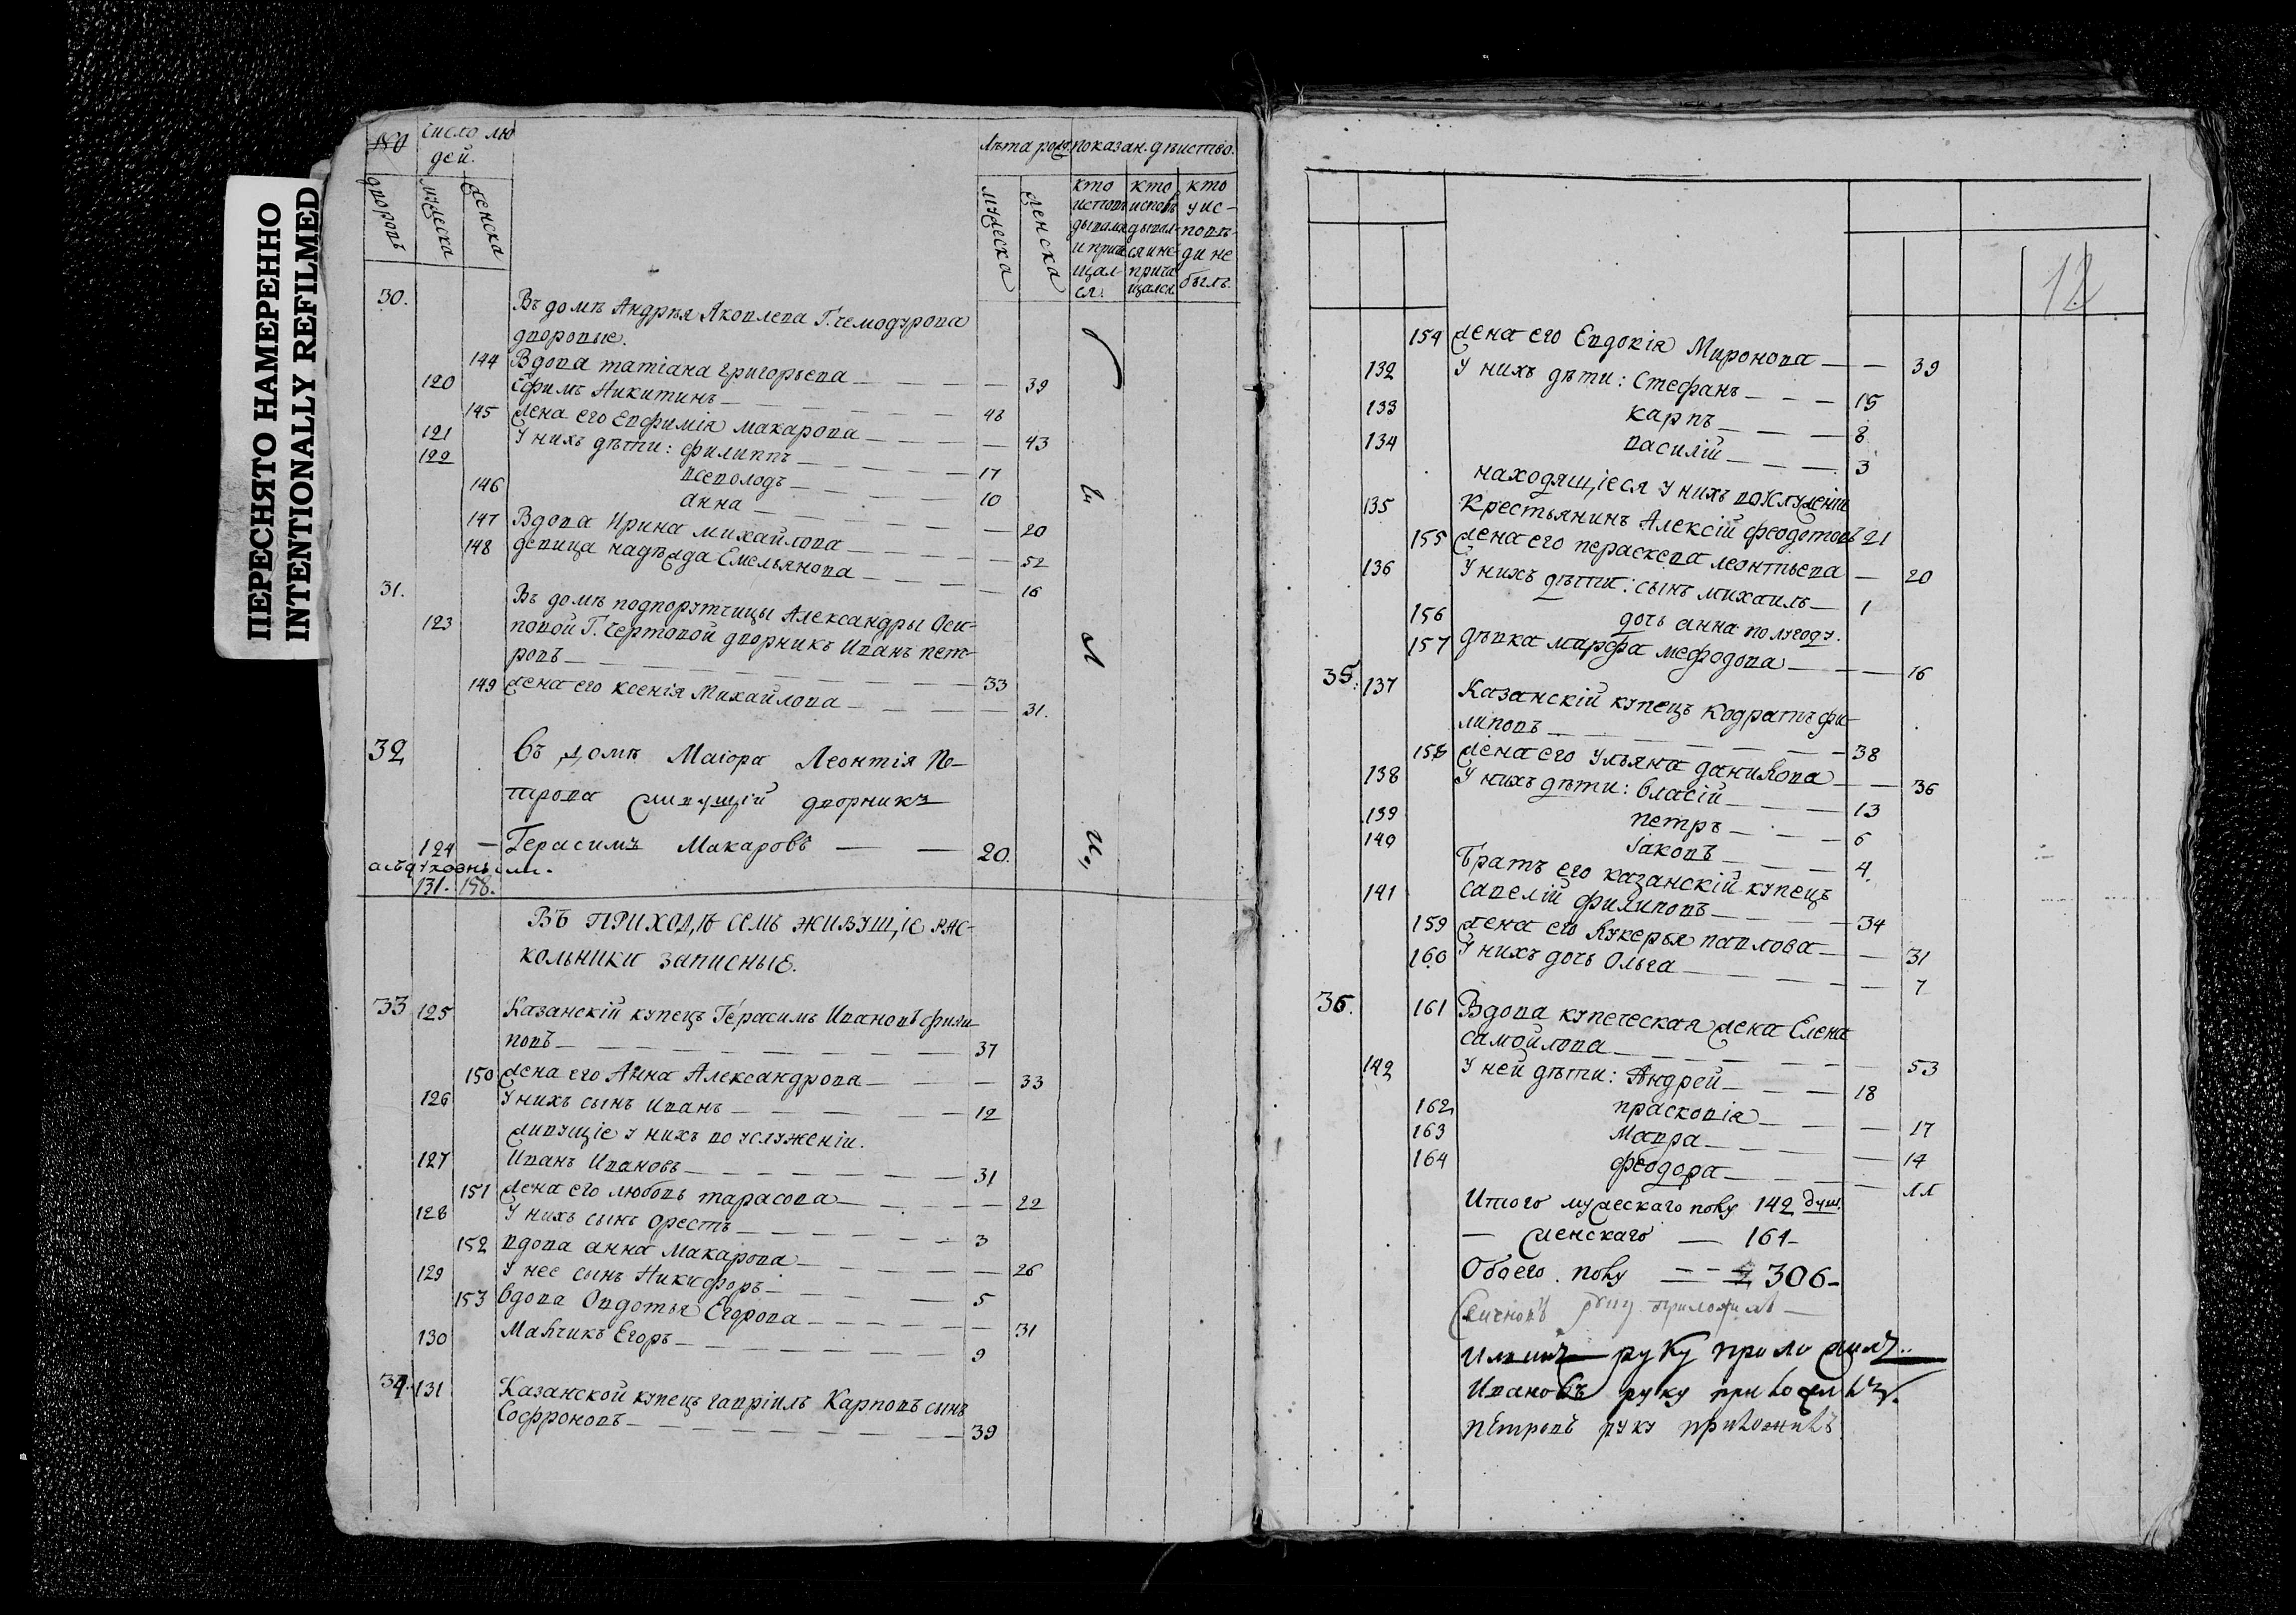 ПЕРЕСНЯТО НАМЕРЕННО
INTENTIONALLY REFILMED
число лю
дей.
лѣта рож. показан. дѣиство.
дворовъ
мужеска
женска
мужеска
женска
кто исповѣдывался и причащался.
кто исповѣдывался и не причащался.
кто у исповѣди не былъ.
30. Въ домѣ Андрѣя Яковлева Г. чемодурова
дворовые.
144 Вдова татіана григорьева — 39
120 Ефимъ Никитинъ — 48
145 жена его Евфимія макарова — 43
121 У нихъ дѣти: филиппъ — 17
122 всеволодъ — 10
146 анна — 20
147 Вдова Ирина михайлова — 52
148 девица надѣжда Емельянова — 16
31. Въ домѣ подпорутчицы Александры Оси-
123 повой Г. Чертовой дворникъ Иванъ пет-
ровъ — 33
149 жена его ксенія Михайлова — 31.
32 Въ домѣ Маіора Леонтія Пе-
трова живущій дворникъ
124 — Герасимъ Макаровъ — 20.
131. 158.
Въ приходѣ семъ живущіе рас-
кольники записные.
33 125 Казанскій купецъ Герасимъ Ивановъ фили-
повъ — 37
150 жена его Анна Александрова — 33
126 У нихъ сынъ Иванъ — 12
живущіе у нихъ во услуженіи.
127 Иванъ Ивановъ — 31
151 жена его любовь тарасова — 22
128 У нихъ сынъ орестъ — 3
152 вдова анна Макарова — 26
129 У нее сынъ Никифоръ — 5
153 вдова Овдотья Егорова — 31
130 Малчикъ Егоръ — 9
34. 131 Казанской купецъ гавріилъ Карповъ сынъ
Софроновъ — 39
12
154 жена его Евдокія Миронова — 39
132 У нихъ дѣти: Стефанъ — 15
133 карпъ — 8
134 василій — 3
находящіеся у нихъ
135 Крестьянинъ Алексій феодотовъ 21
155 жена его пераскева леонтьева — 20
136 У нихъ дѣти: сынъ михаилъ — 1
156 дочь анна полугоду.
157 дѣвка марфа мефодова — 16
35. 137 Казанскій купецъ кодратъ фи-
липовъ — 38
158 жена его Ульяна данилова — 36
138 У нихъ дѣти: власій — 13
139 петръ — 6
140 іаковъ — 4.
Братъ его казанскій купецъ
141 савелій филиповъ — 34
159 жена его лукерья павлова — 31
160 У нихъ дочь Ольга — 7
36. 161 Вдова купеческая жена Елена
самойлова — 53
142 У ней дѣти: Андрей — 18
162 прасковія — 17
163 Мавра — 14
164 феодора — 11
Итого мужескаго полу 142 душ.
— женскаго — 164 —
Обоего полу — 306 —
руку приложилъ —
руку приложилъ
Ивановъ руку приложилъ
Петровъ руку приложилъ